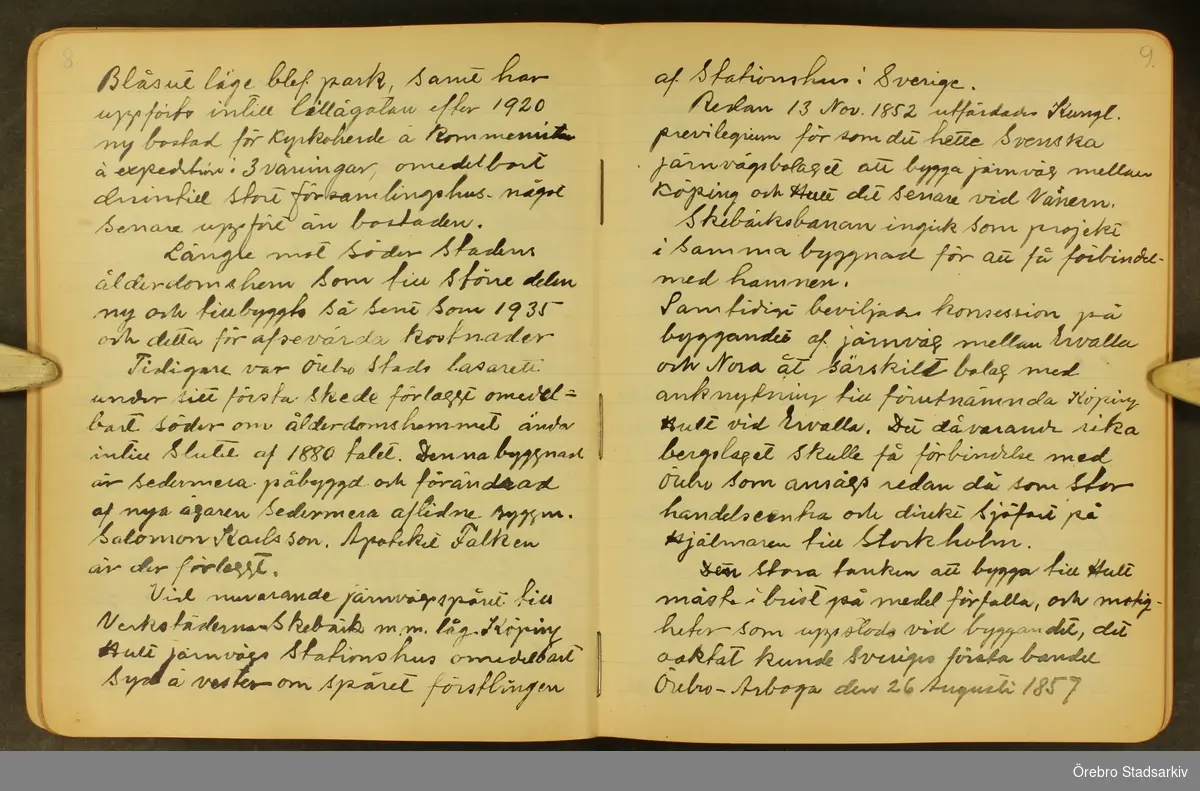 8.
Blåsut läge blef park, samt har
uppförts intill Lillågatan efter 1920
ny bostad för Kyrkoherde å Komminister
å expedition i 3 våningar, omedelbart
derintill stort församlingshus - något
senare uppfört än bostaden.
Längre mot söder Stadens
ålderdomshem som till större delen
ny och tillbyggts så sent som 1935
och detta för afsevärda kostnader
Tidigare var Örebro Stads lasarett
under sitt första skede förlaggt omedel=
bart söder om ålderdomshemmet ända
intill slutet af 1880 talet. Denna byggnad
är sedermera påbyggd och förändrad
af nya ägaren sedermera aflidne Byggm.
Salomon Karlsson. Apoteket Falken
är der förlaggt.
Vid nuvarande järnvägspåret till
Verkstäderna Skebäck m.m. låg Köping
Hult järnvägs Stationshus omedelbart
syd å vester om spåret förstlingen
9.
af Stationshus i Sverige.
Redan 13 Nov. 1852 utfärdades Kungl.
previlegium för som det hette Svenska
järnvägsbolaget att bygga järnväg mellan
Köping och Hult det senare vid Vänern.
Skebäcksbanan ingick som projekt
i samma byggnad för att få förbindel-
med hamnen.
Samtidigt beviljades konsession på
byggandet af järnväg mellan Ervalla
och Nora åt särskilt bolag med
anknytning till förutnämnda Köping
Hult vid Ervalla. Det dåvarande rika
bergslaget skulle få förbindelse med
Örebro som ansågs redan då som stor
handelscentra och direkt sjöfart på
Hjälmaren till Stockholm.
Den stora tanken att bygga till Hult
måste i brist på medel förfalla, och motig-
heter som uppstods vid byggandet, det
oaktat kunde Sveriges första bandel
Örebro - Arboga den 26 Augusti 1857
Örebro Stadsarkiv